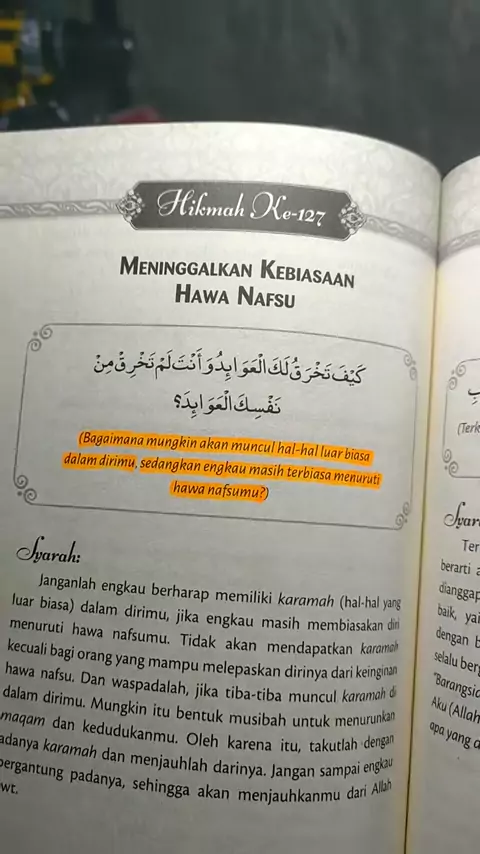 Hikmah Ke-127
MENINGGALKAN KEBIASAAN
HAWA NAFSU
كَيْفَ تَخْرَقُ لَكَ الْعَوَايِدُ وَأَنْتَ لَمْ تَخْرِقْ مِنْ
نَفْسِكَ الْعَوَايِدَ؟
(Bagaimana mungkin akan muncul hal-hal luar biasa
dalam dirimu, sedangkan engkau masih terbiasa menuruti
hawa nafsumu?)
Syarah:
Janganlah engkau berharap memiliki karamah (hal-hal yang
luar biasa) dalam dirimu, jika engkau masih membiasakan diri
menuruti hawa nafsumu. Tidak akan mendapatkan karamah
kecuali bagi orang yang mampu melepaskan dirinya dari keinginan
hawa nafsu. Dan waspadalah, jika tiba-tiba muncul karamah di
dalam dirimu. Mungkin itu bentuk musibah untuk menurunkan
maqam dan kedudukanmu. Oleh karena itu, takutlah dengan
adanya karamah dan menjauhlah darinya. Jangan sampai engkau
bergantung padanya, sehingga akan menjauhkanmu dari Allah
wt.
(Terk
Syar
Ter
berarti a
dianggap
baik, yai
dengan b
selalu berg
"Barangsia
Aku (Allah
apa yang d